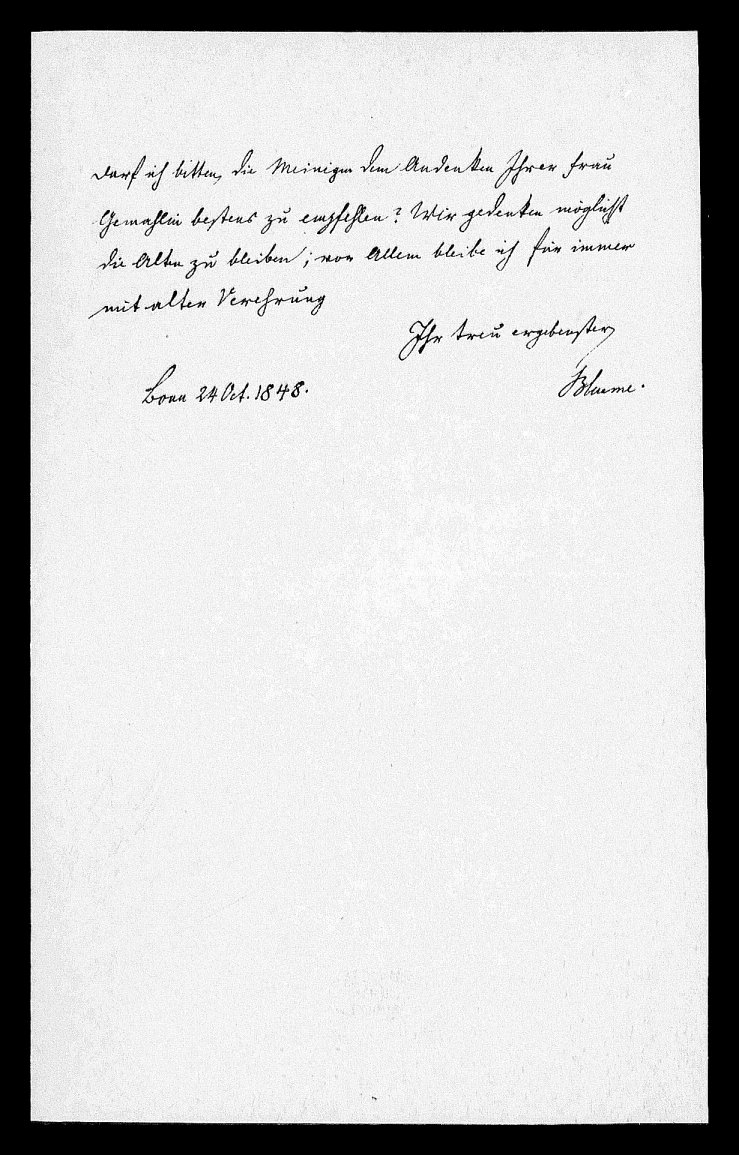 Darf ich bitten, die Meinigen dem Andenken Ihrer Frau
Gemahlin bestens zu empfehlen? Wir gedenken möglichst
die Alten zu bleiben; vor Allem bleibe ich für immer
mit alter Verehrung
Ihr treu ergebenster
Bonn 24 Oct. 1848.
Blume.